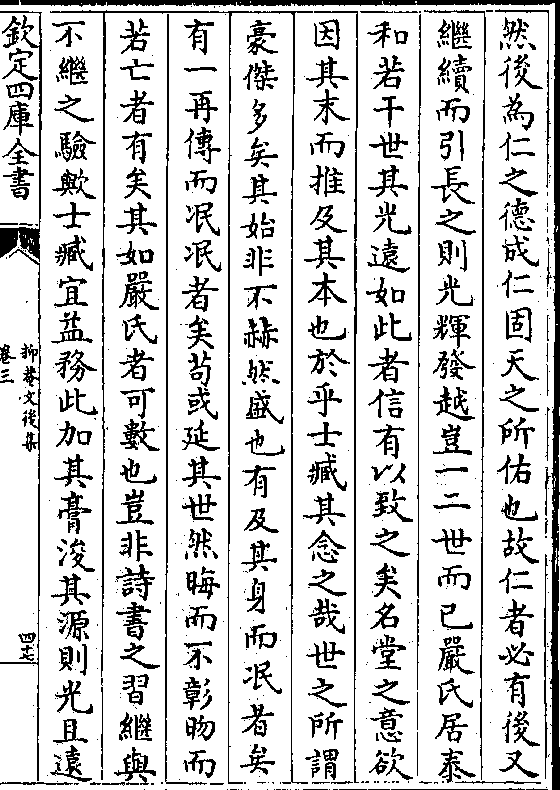 然後為仁之德成仁固天之所佑也故仁者必有後又
繼續而引長之則光輝發越豈一二世而已嚴氏居泰
和若干世其光遠如此者信有以致之矣名堂之意欲
因其末而推及其本也於乎士臧其念之哉世之所謂
豪傑多矣其始非不赫然盛也有及其身而冺者矣
有一再傳而冺冺者矣茍或延其世然晦而不彰昒而
若亡者有矣其如嚴氏者可數也豈非詩書之習繼與
不繼之驗歟士臧宜益務此加其膏浚其源則光且遠
欽定四庫全書
抑菴文後集
卷三
四七